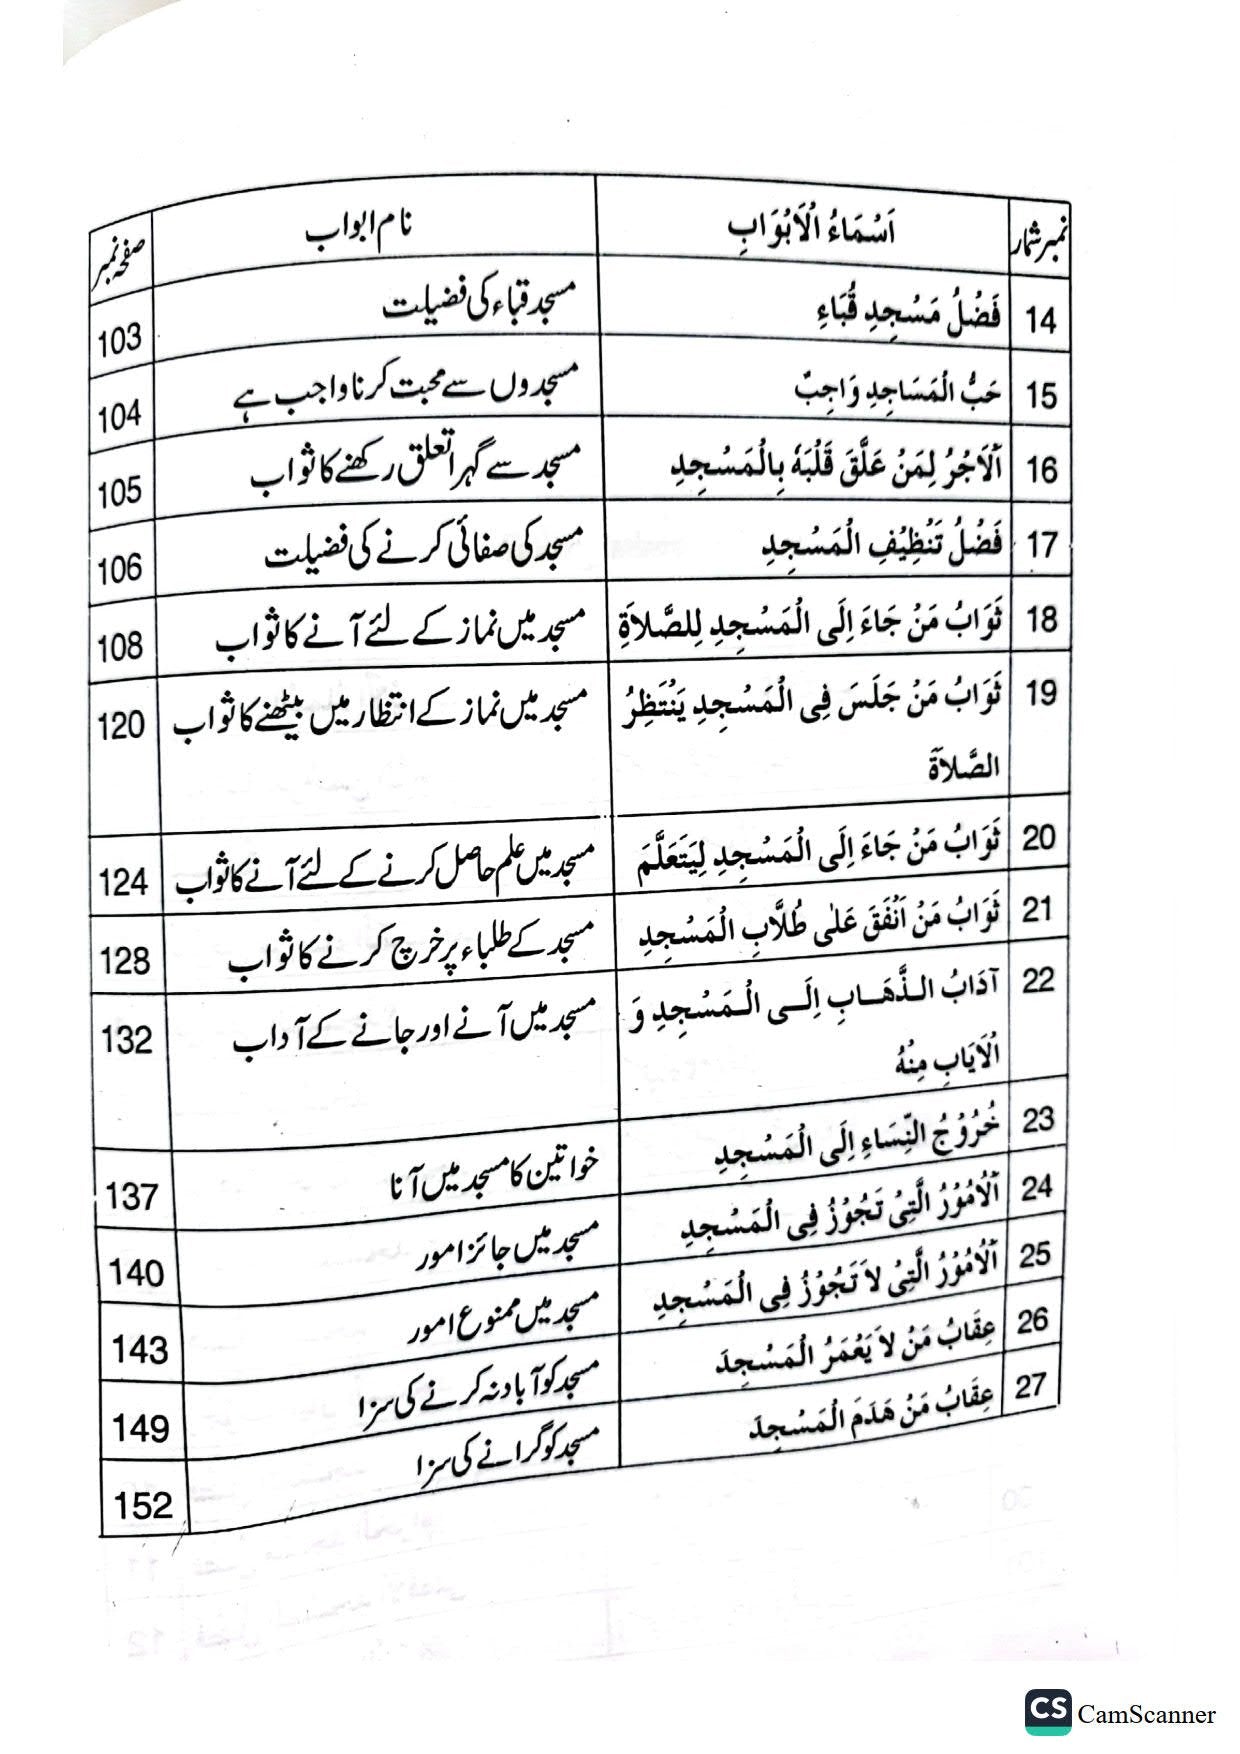 نمبر شمار اَسْمَاءُ الْاَبْوَابِ نام ابواب صفحہ نمبر
14 فَضْلُ مَسْجِدِ قُبَاءِ مسجد قباء کی فضیلت 103
15 حَبُّ الْمَسَاجِدِ وَاجِبٌ مسجدوں سے محبت کرنا واجب ہے 104
16 اَلْاَجْرُ لِمَنْ عَلَّقَ قَلْبَهٗ بِالْمَسْجِدِ مسجد سے گہرا تعلق رکھنے کا ثواب 105
17 فَضْلُ تَنْظِيْفِ الْمَسْجِدِ مسجد کی صفائی کرنے کی فضیلت 106
18 ثَوَابُ مَنْ جَاءَ اِلَى الْمَسْجِدِ لِلصَّلاَةِ مسجد میں نماز کے لئے آنے کا ثواب 108
19 ثَوَابُ مَنْ جَلَسَ فِى الْمَسْجِدِ يَنْتَظِرُ مسجد میں نماز کے انتظار میں بیٹھنے کا ثواب 120
الصَّلاَةَ
20 ثَوَابُ مَنْ جَاءَ اِلَى الْمَسْجِدِ لِيَتَعَلَّمَ مسجد میں علم حاصل کرنے کے لئے آنے کا ثواب 124
21 ثَوَابُ مَنْ اَنْفَقَ عَلٰى طُلَّابِ الْمَسْجِدِ مسجد کے طلباء پر خرچ کرنے کا ثواب 128
22 آدَابُ الذَّهَابِ اِلَى الْمَسْجِدِ وَ مسجد میں آنے اور جانے کے آداب 132
الْاِيَابِ مِنْهُ
23 خُرُوْجُ النِّسَاءِ اِلَى الْمَسْجِدِ خواتین کا مسجد میں آنا 137
24 اَلْاُمُوْرُ الَّتِىْ تَجُوْزُ فِى الْمَسْجِدِ مسجد میں جائز امور 140
25 اَلْاُمُوْرُ الَّتِىْ لاَ تَجُوْزُ فِى الْمَسْجِدِ مسجد میں ممنوع امور 143
26 عِقَابُ مَنْ لاَ يَعْمَرُ الْمَسْجِدَ مسجد کو آباد نہ کرنے کی سزا 149
27 عِقَابُ مَنْ هَدَمَ الْمَسْجِدَ مسجد کو گرانے کی سزا 152
CS CamScanner